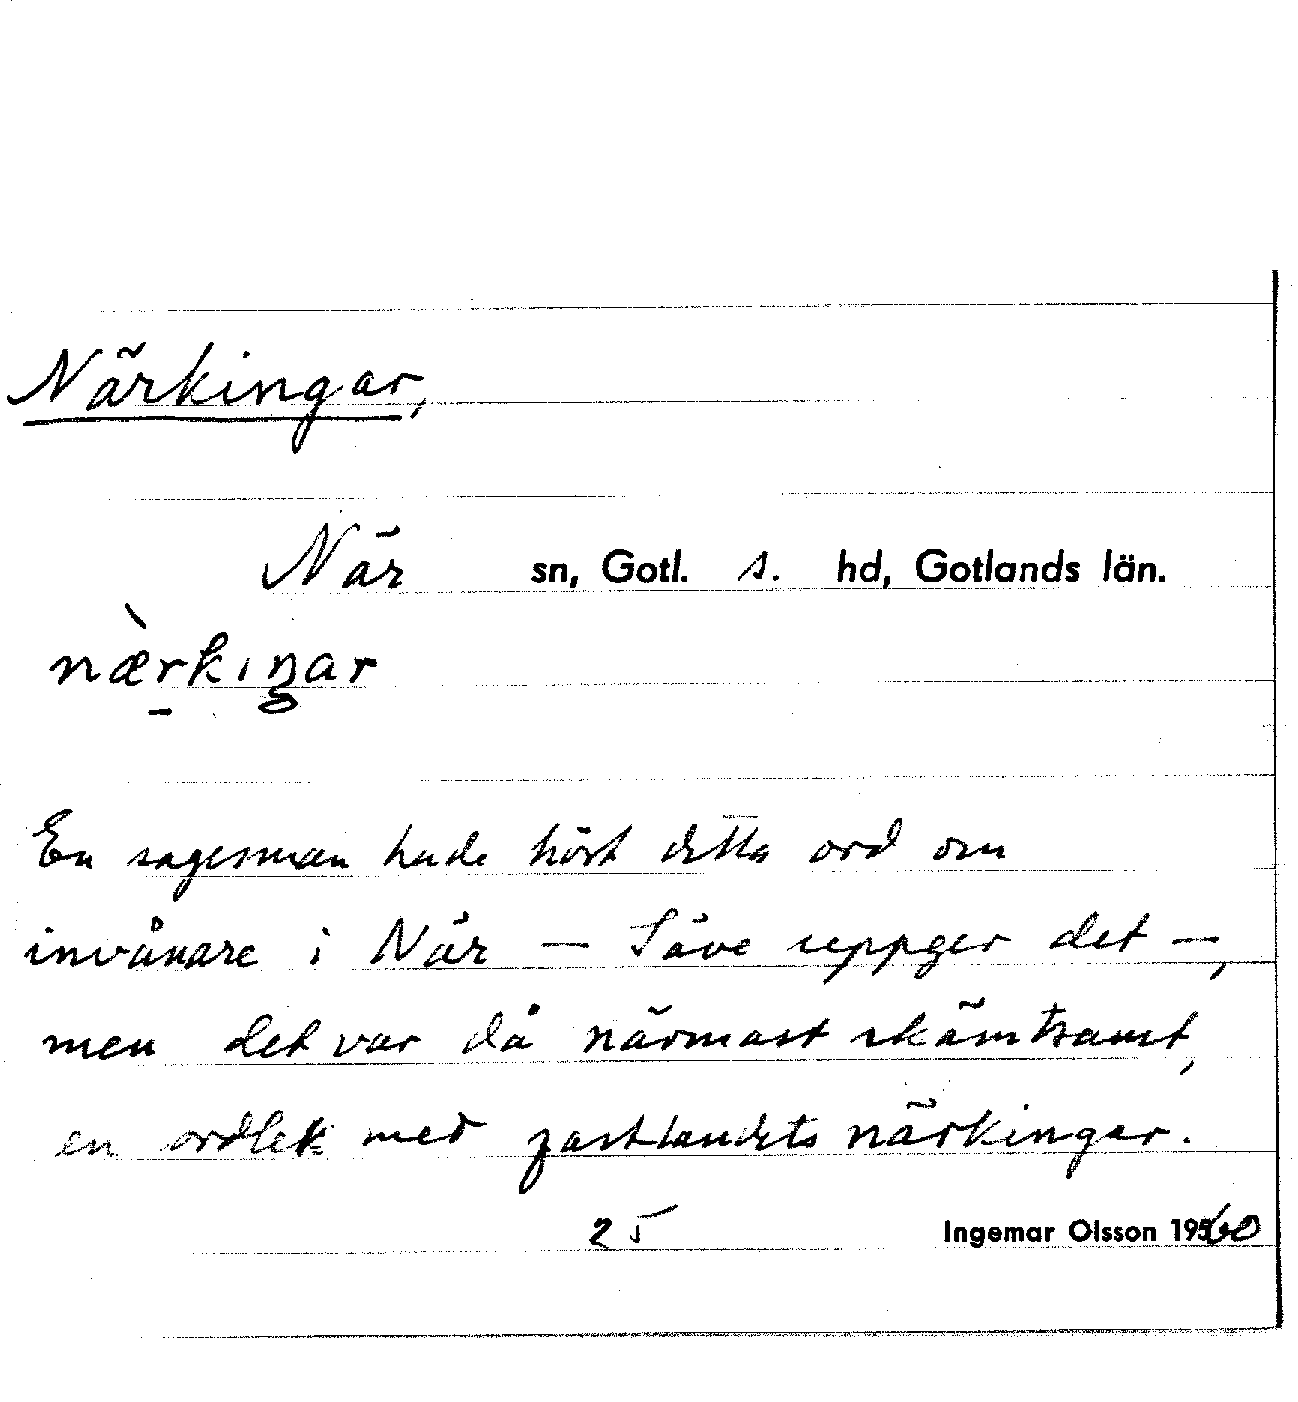 Närkingar,
När sn, Gotl. s. hd, Gotlands län.
næ̀rkıŋar
En sagesman hade hört detta ord om
invånare i När — Säve uppger det —,
men det var då närmast skämtsamt,
en ordlek med fastlandets närkingar.
25 Ingemar Olsson 1960